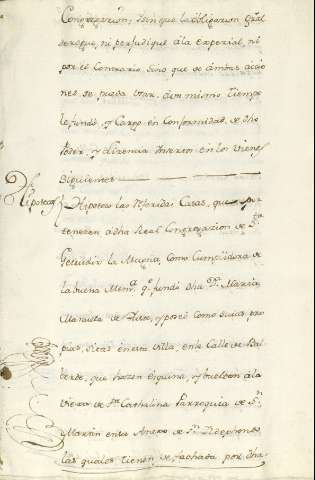 Congregacion, sin que la obligacion gral
derogue, ni perjudique â la expecial, ni
por el Contrario, sino que de ambas accio
nes se pueda Usar, a un mismo tiempo
lo fundó, y Cargó en Conformidad de dho
Poder, y Licencia Insertos en los vienes
Siguientes
Hipotecas
Hipoteca las Referidas Casas, que per
tenecen a dha Real Congregazion de Sta
Getrudis la Magna, como Cumplidora de
la buena Memª qe fundó dha Dª Maria
Manuela de, y posee como suias pro
pias, sitas en esta Villa, en la Calle de Bal
berde, que hazen esquina, y buelben â la
Viexa de Sta Cathalina Parroquia de Sn
Martin en su Anexo de Sn Ildephonso,
las quales tienen de fachada por dha